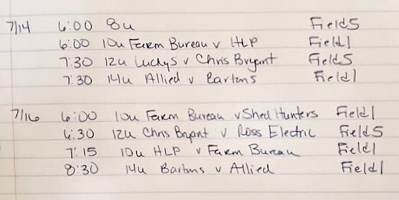 7/14 6:00 8u Field 5
6:00 10u Farm Bureau v HLP Field 1
7:30 12u Luckys v Chris Bryant Field 5
7:30 14u Allied v Bartons Field 1
7/16 6:00 10u Farm Bureau v Shed Hunters Field 1
6:30 12u Chris Bryant v Ross Electric Field 5
7:15 10u HLP v Farm Bureau Field 1
8:30 14u Bartons v Allied Field 1